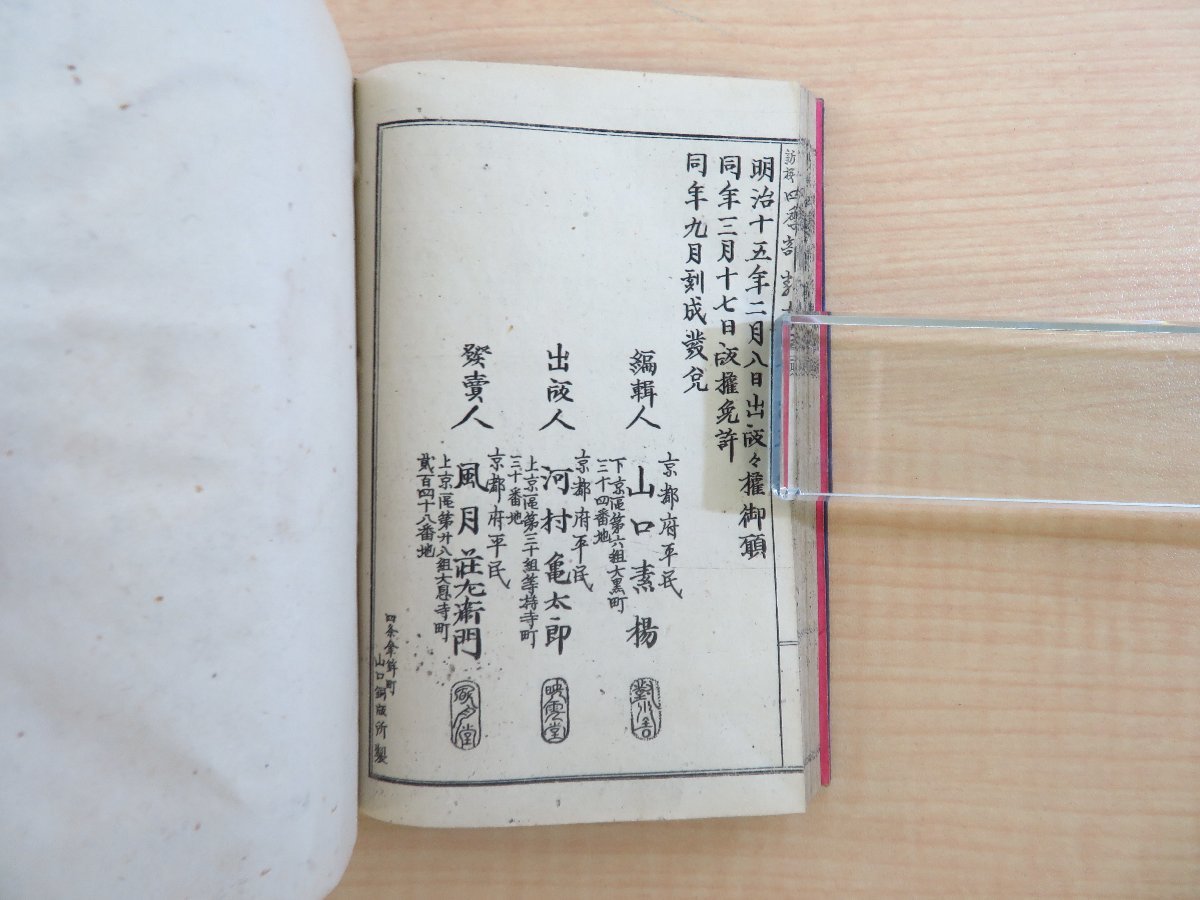 明治十五年二月八日出版々權御願
同年三月十七日版權免許
同年九月刻成發兌
京都府平民
編輯人 山口素楊
下京區第六組大黒町
三十四番地
京都府平民
出版人 河村亀太郎
上京區第三十組等持寺町
三十番地
京都府平民
發賣人 風月荘左衛門
上京區第廿八組大恩寺町
貳百四十八番地
映雲堂
四条傘鉾町
山口銅版所製